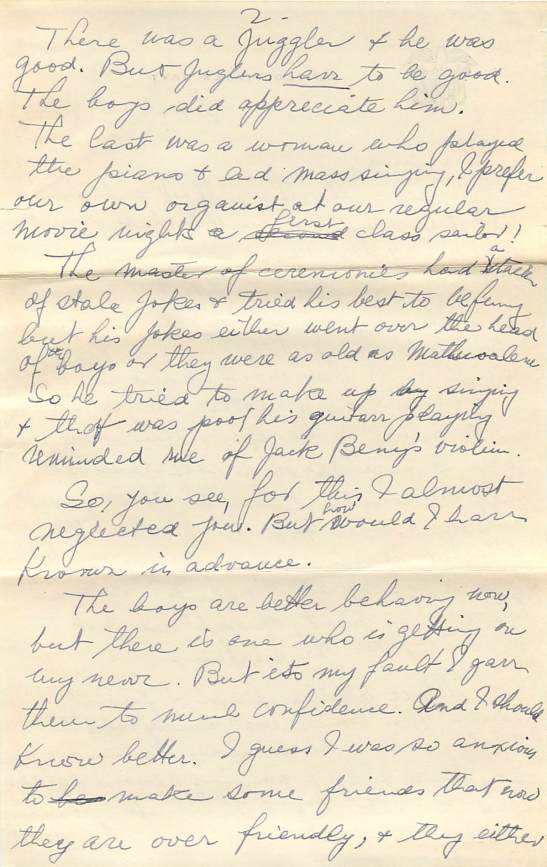 2.
There was a Juggler & he was
good. But Juglers have to be good.
The boys did appreciate him.
The last was a woman who played
the piano & led mass singing, I prefer
our own organist at our regular
movie nights a second first class sailor!
The master of ceremonies had a stack
of stale Jokes & tried his best to be funny
but his Jokes either went over the head
of the boys or they were as old as Mathusalem
So he tried to make up by singing
& that was poor his guitarr playing
reminded me of Jack Beny's violin.
So, you see, for this I almost
neglected you. But how would I have
known in advance.
The boys are better behaving now,
but there is one who is getting on
my nerve. But its my fault I gave
them to much confidence. And I should
know better. I guess I was so anxious
to be make some friends that now
they are over friendly, & they either